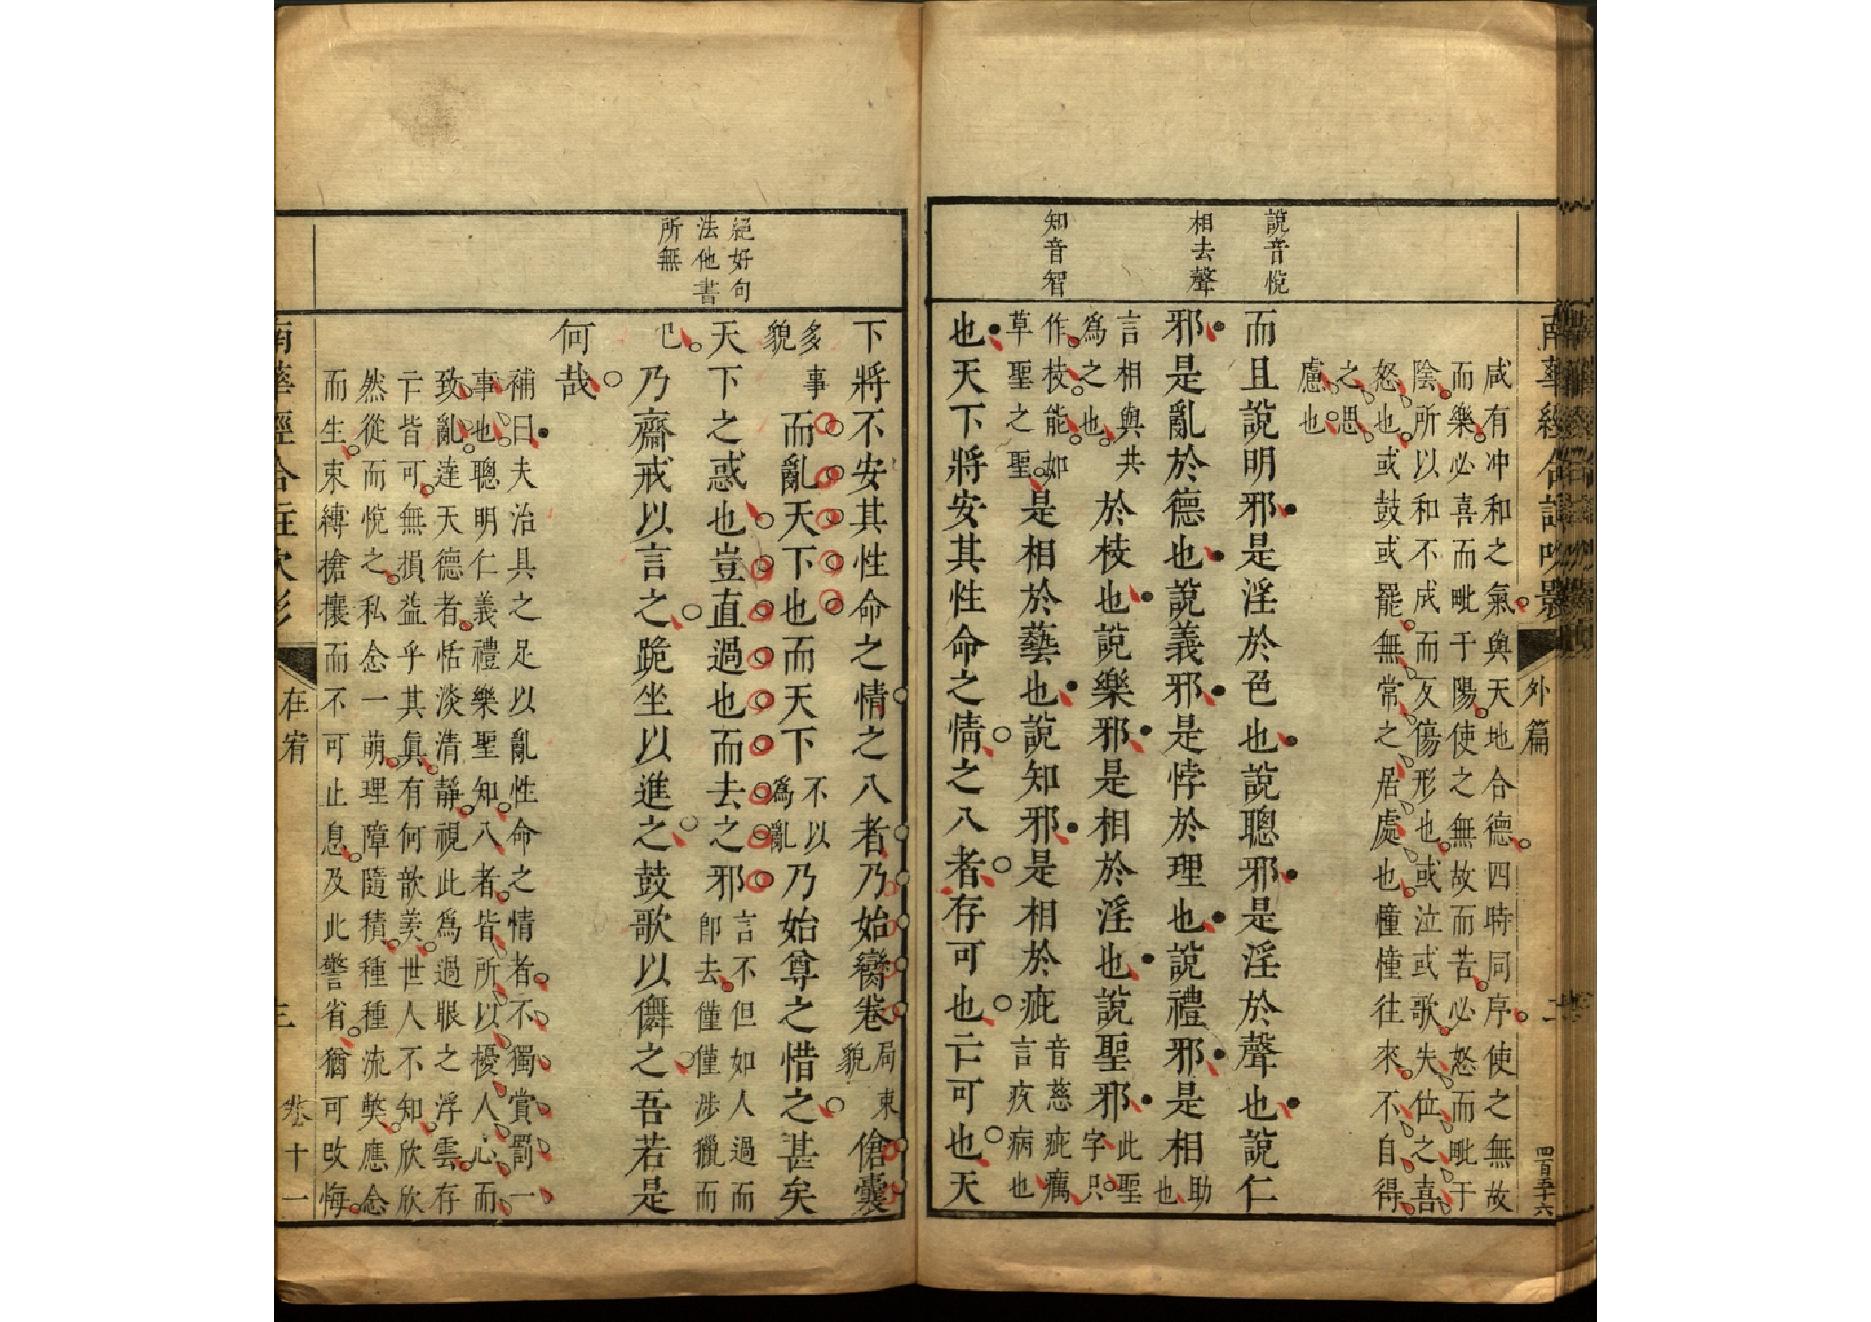 說音悅
相去聲
知音智
南華經合註吹影
外篇
二
四百五十六
咸有冲和之氣與天地合德四時同序使之無故
而樂必喜而毗于陽使之無故而苦必怒而毗于
陰所以和不成而反傷形也或泣或歌失位之喜
怒也或鼓或罷無常之居處也憧憧往來不自得
之思
慮也
而且說明邪是淫於色也說聰邪是淫於聲也說仁
邪是亂於德也說義邪是悖於理也說禮邪是相助也
言相與共為之也於枝也說樂邪是相於淫也說聖邪此聖字只
作枝能如草聖之聖是相於藝也說知邪是相於疵音慈疵癘言疚病也
也天下將安其性命之情之八者存可也亡可也天
絕好句
法他書
所無
下將不安其性命之情之八者乃始臠卷局束貌傖囊
多事貌而亂天下也而天下不以為亂乃始尊之惜之甚矣
天下之惑也豈直過也而去之邪言不但如人過而卽去僅僅涉獵而
已乃齋戒以言之跪坐以進之鼓歌以儛之吾若是
何哉
補曰夫治具之足以亂性命之情者不獨賞罰一
事也聰明仁義禮樂聖知八者皆所以擾人心而
致亂達天德者恬淡清靜視此為過眼之浮雲存
亡皆可無損益乎其眞有何歆羨世人不知欣欣
然從而悅之私念一萌理障隨積種種流獘應念
而生束縛搶攘而不可止息及此警省猶可改悔
南華經合註吹影
在宥
三
卷十一